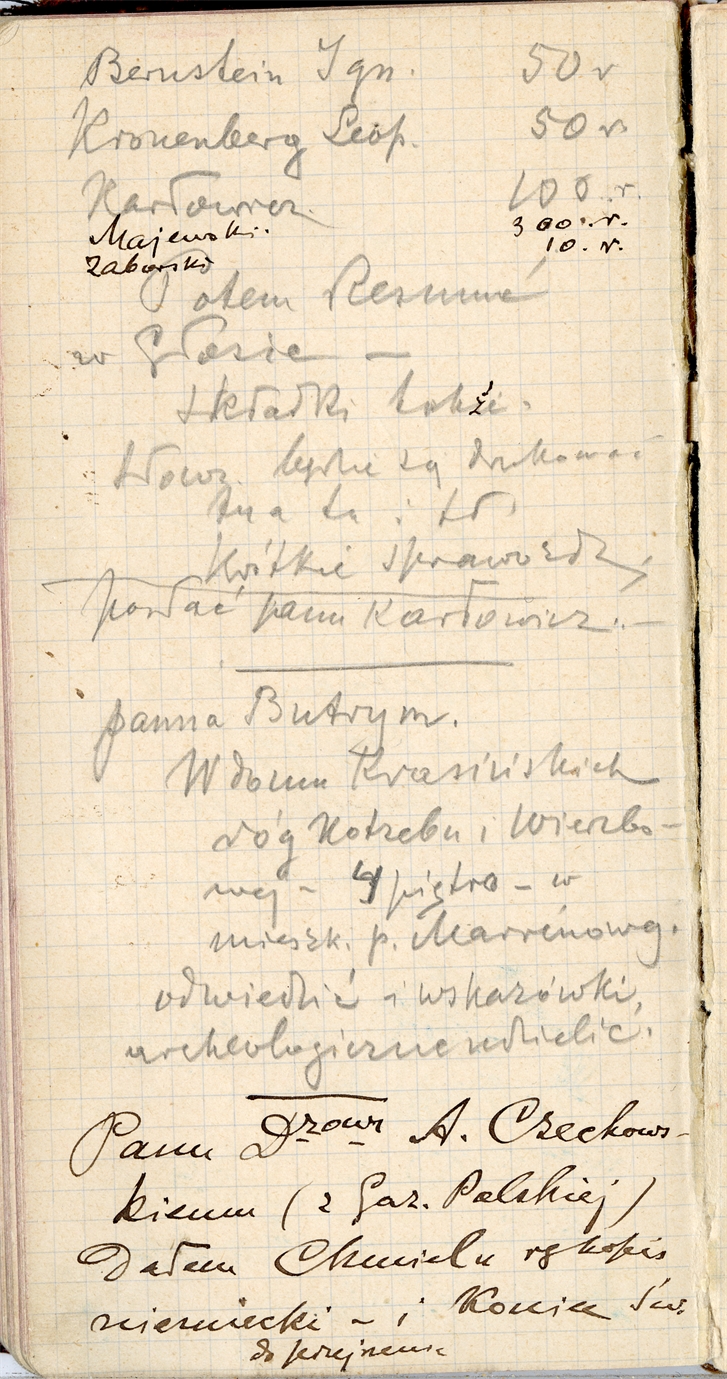 Bernstein Ign. 50 r
Kronenberg Leop. 50 r.
Karłowicz 100 r.
Majewski. 300. r.
Zaborski 10. r.
Potem Resumé
w Głosie —
składki także.
będzie są drukować
tu i
krótkie sprawozd.
posłać panu Karłowicz. —
panna Butrym.
W domu Krasińskich
róg Kotzebu i Wierzbo-
wej – 4 piętro – w
mieszk. p. Marrénowej.
odwiedzić i wskazówki,
archeologiczne udzielić.
Panu Drowi A. Czechows-
kiemu (z Gaz. Polskiej)
Dałem Chmielu rękopis
niemiecki – i Konik Św.
do przejrzenia